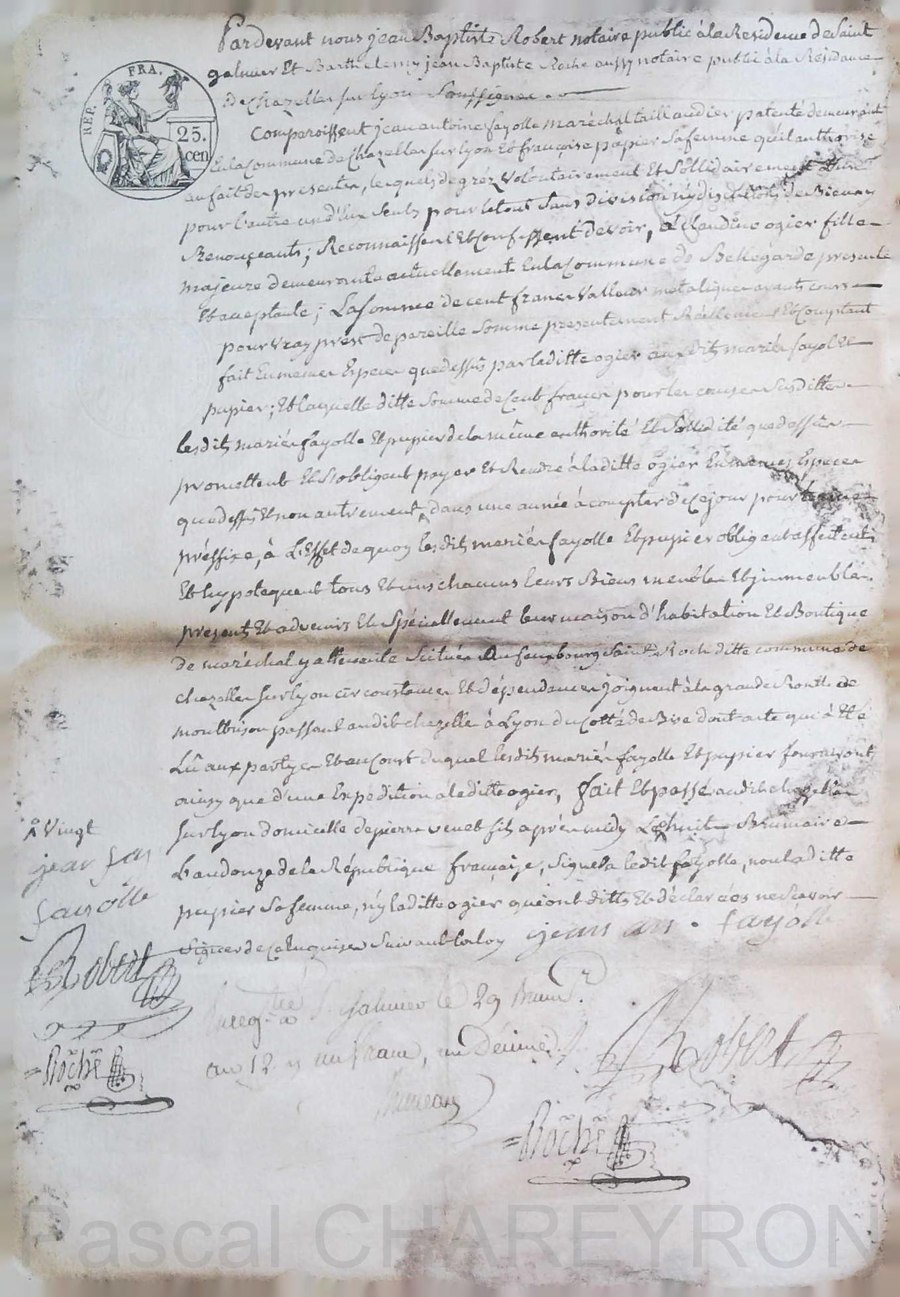 REP. FRA.
25.
cen
Pardevant nous jean Baptiste Robert notaire public à la Residence de Saint
galmier Et Barthelemy jean Baptiste Roche aussy notaire public à la Résidence
de Chazelles sur lyon Soussignés.
Comparoissent jean antoine fayolle maréchal taillandier patenté demeurant
En la Commune de Chazelles sur lyon Et françoise pupier Sa femme qu'il authorise
au fait des presentes, lesquels de grez Volontairement Et Sollidairement L'un
pour l'autre un d'Eux Seuls pour letout Sans division ny discution de Bien y
Renonçeants; Reconnaissent Et Confessent devoir, à Claudine ogier fille
majeure demeurante actuellement En la Commune de Bellegarde presente
Et acceptante; La Somme de cent francs Valleur metalique ayants cours
pour Vray prest de pareille Somme presentement Réellement Et Comptant
fait En memes Especes que dessus par laditte ogier auxdits mariés fayolle Et
pupier; Et laquelle ditte Somme de Cent francs pour les causes Susdittes
lesdits mariés fayolle Et pupier de la même authorité Et Sollidité que dessus
promettent Et S'obligent payer Et Rendre à laditte ogier En memes Especes
que dessus Et non autrement, dans une année à compter de Ce jour pour terme
préffixe, à L'Effet de quoy lesdits mariés fayolle Et pupier obligent affectent
Et hypotequent tous Et uns chacuns leurs Biens meubles Et jmmeubles
presents Et advenirs Et Spéciallement leur maison d'habitation Et Boutique
de maréchal y attenante Scituée Au fauxbourg Saint Roch ditte commune de
chazelles sur lyon circonstances Et dépendances joignant à la grande Routte de
montbrison passant audit chazelle à Lyon du Cotté de Bise dont acte qui à Eté
Lû aux partyes Et au Court duquel lesdits mariés fayolle Et pupier fourniront
ainsy que d'une Expedition à laditte ogier, fait Et passé audit chazelles
sur lyon domicille de pierre venet fils après midy Le huit Brumaire
L'an douze de la République françaîse, Signé ledit fayolle, non laditte
pupier Sa femme, n'y laditte ogier qui ont dittes Et déclarées ne Scavoir
Signer de Ce Enquises Suivant la loy jean an. fayolle
à Vingt
jean fayolle
Robert
Roche
Enreg.tré à S.t galmier le 29 brum.re
an 12 un franc, un Décime
Robert
Roche
Pascal CHAREYRON